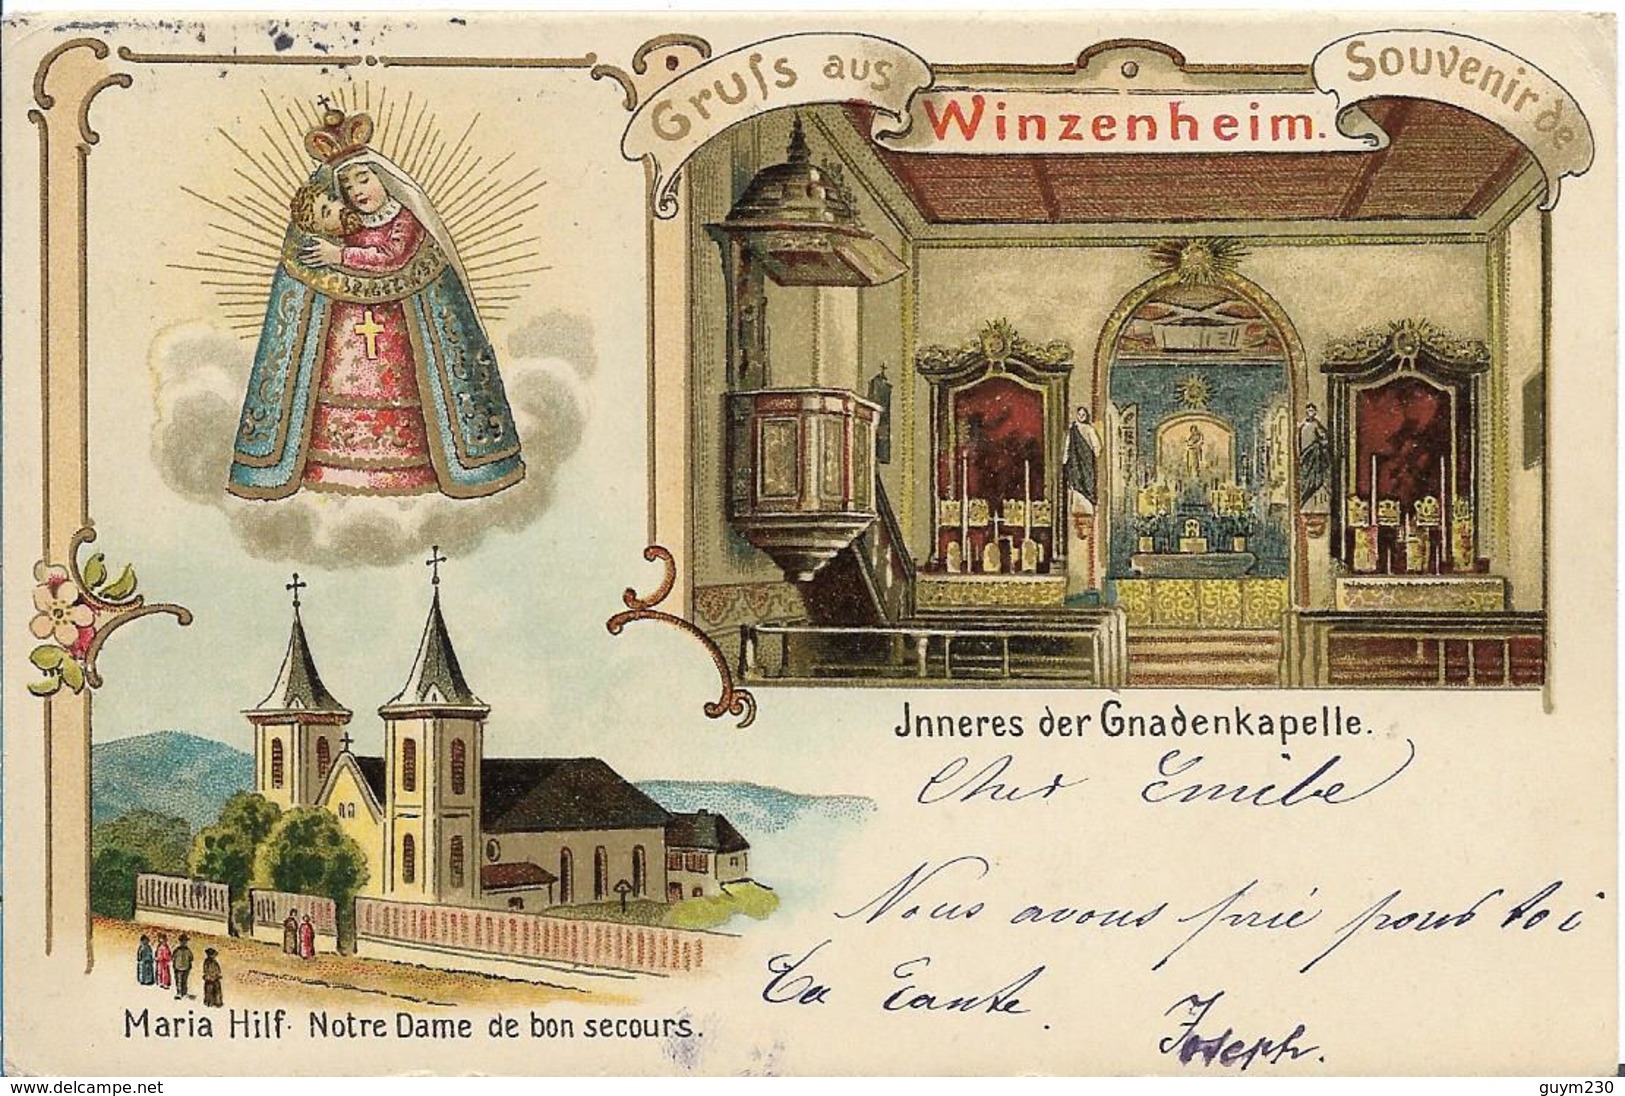 Gruſs aus
Winzenheim.
Souvenir de
Jnneres der Gnadenkapelle.
Cher Emile
Nous avons prié pour toi
Ta Tante.
Joseph.
Maria Hilf. Notre Dame de bon secours.
www.delcampe.net
guym230